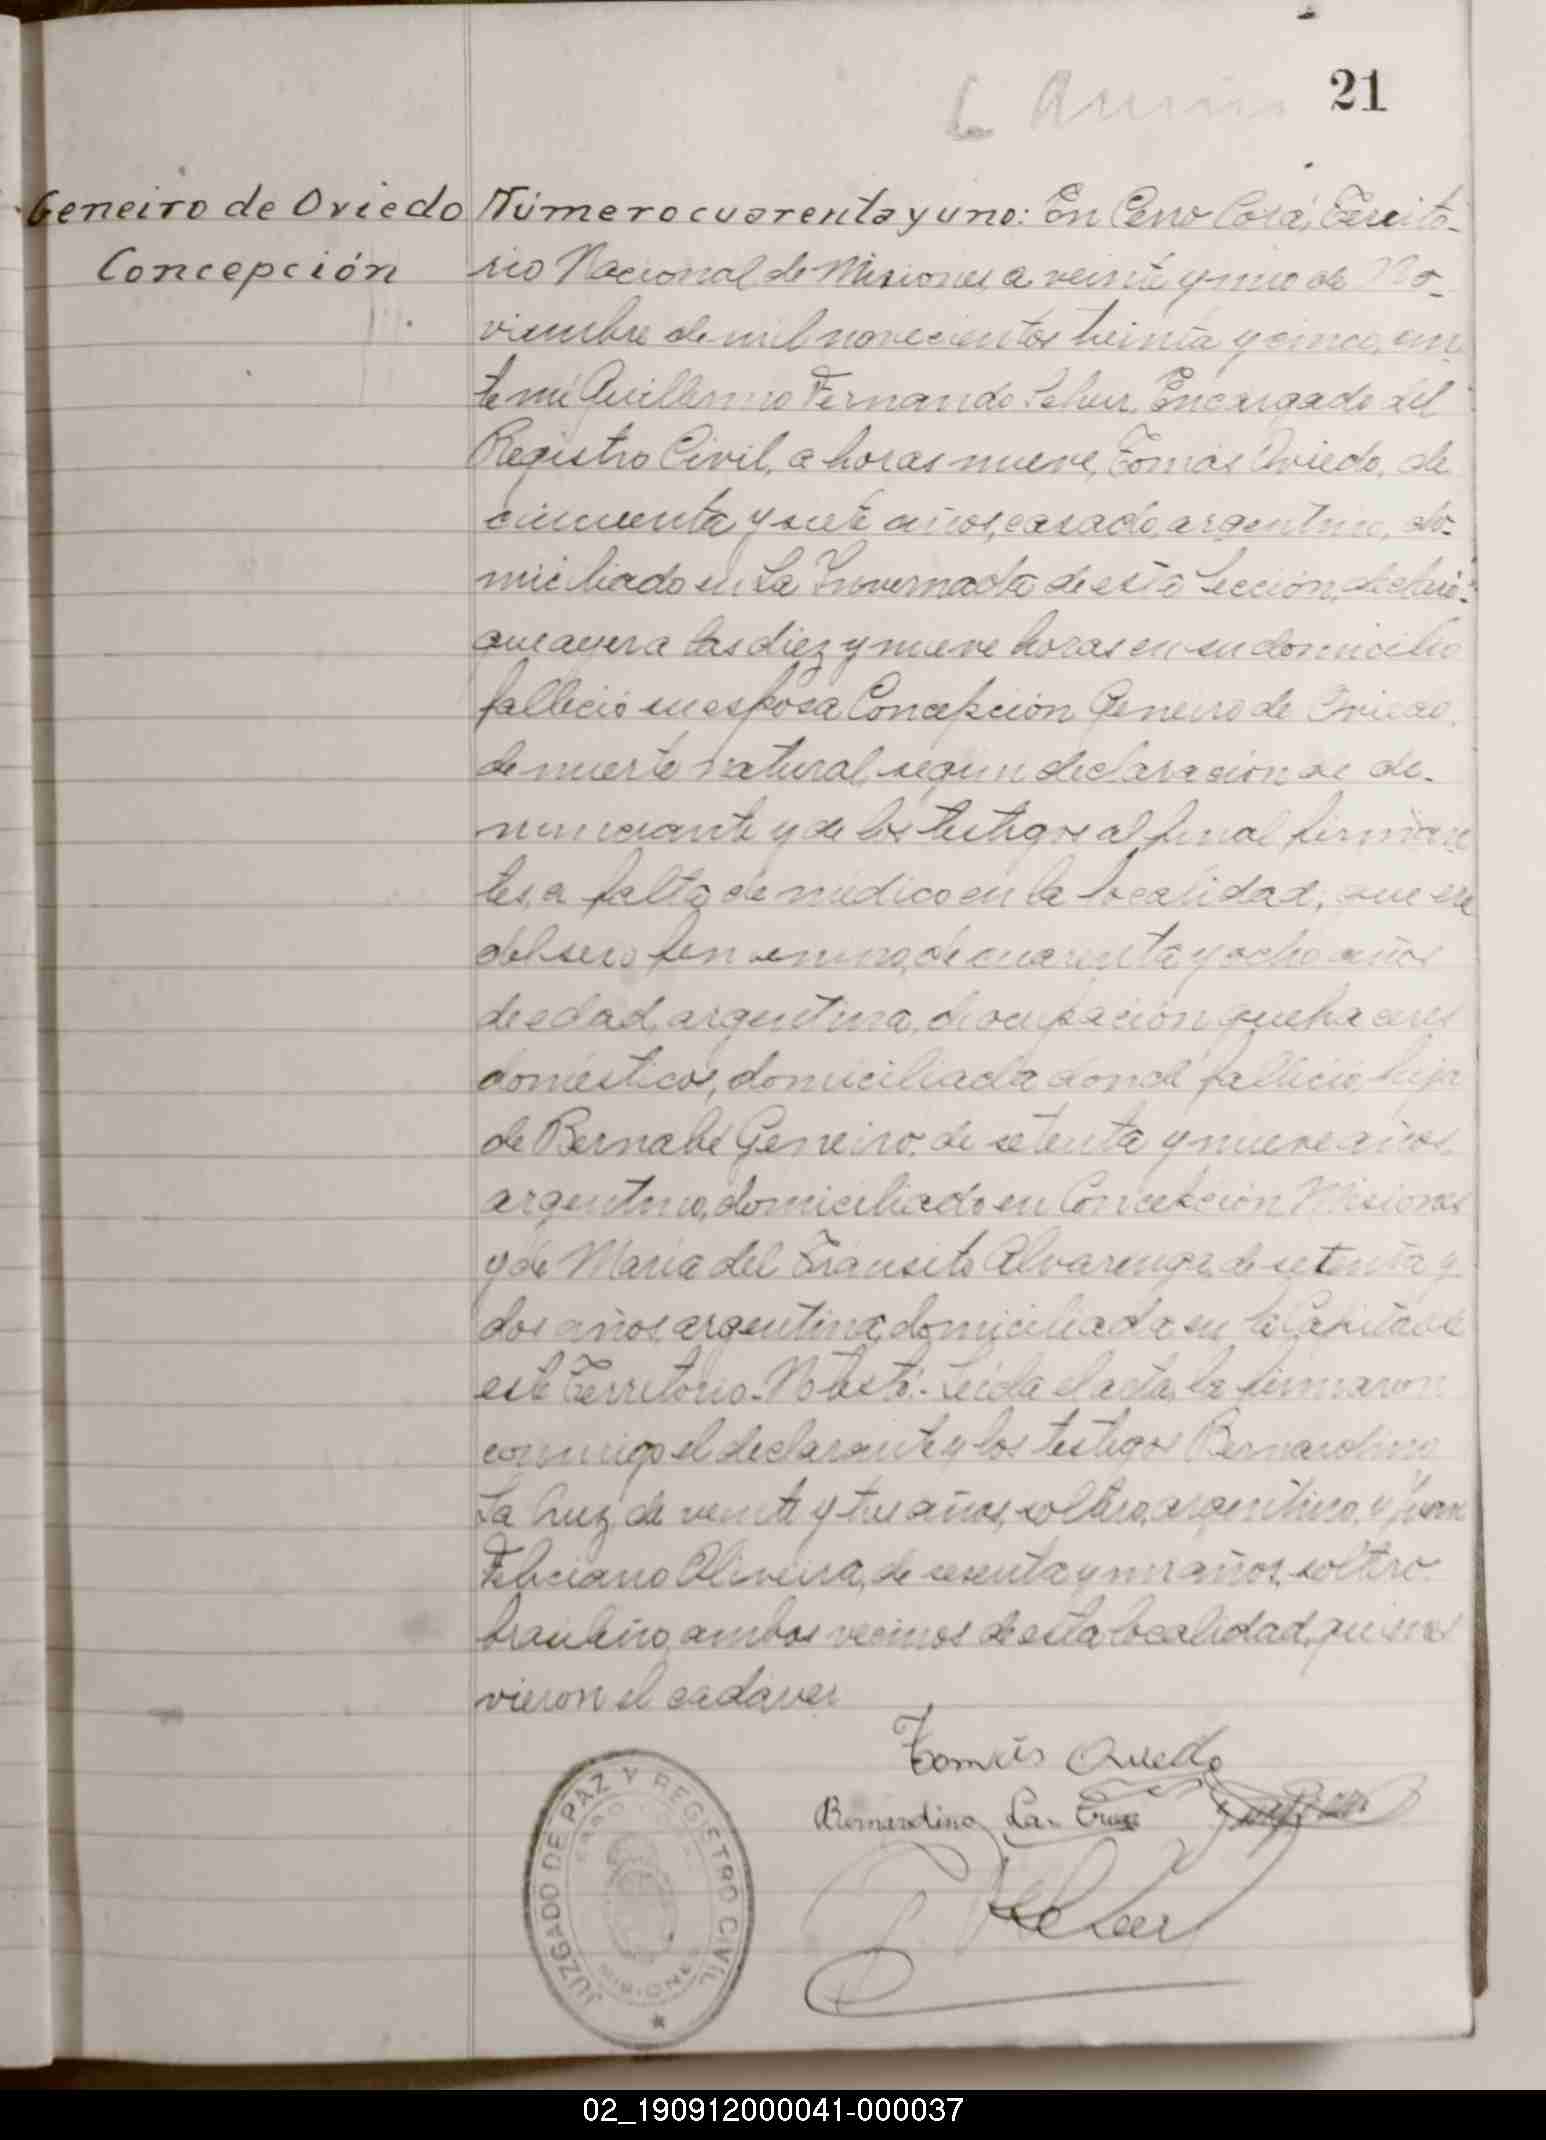 21
Geneiro de Oviedo
Concepción
Número cuarenta y uno: En Cerro Corá, Territo-
rio Nacional de Misiones, a veinte y uno de No-
viembre de mil novecientos treinta y cinco, an
te mí Guillermo Fernando Encargado del
Registro Civil, a horas nueve, Tomás Oviedo, de
cincuenta y siete años, casado, argentino, do-
miciliado en La Invernada de esta Sección, declaró:
que ayer a las diez y nueve horas en su domicilio
falleció su esposa Concepción Geneiro de Oviedo,
de muerte natural, segun declaración de de-
nunciante y de los testigos al final firman
tes, a falta de médico en la localidad; que era
del sexo femenino, de cuarenta y ocho años
de edad, argentina, de ocupación quehaceres
domésticos, domiciliada donde falleció, hija
de Bernabé Geneiro, de setenta y nueve años,
argentino, domiciliado en Concepción Misiones
y de María del Tránsito Alvarenga, de setenta y
dos años, argentina, domiciliada en la Capital de
este Territorio. No testó.- Leída el acta, la firmaron
conmigo el declarante y los testigos Bernardino
La Cruz, de veinte y tres años, soltero, argentino, y Juan
Feliciano Oliveira, de sesenta y un años, soltero
brasileño, ambos vecinos de esta localidad, quienes
vieron el cadaver
Tomás Oviedo
Bernardino La Cruz
JUZGADO DE PAZ Y REGISTRO CIVIL
CERRO CORA
MISIONES
02_190912000041-000037